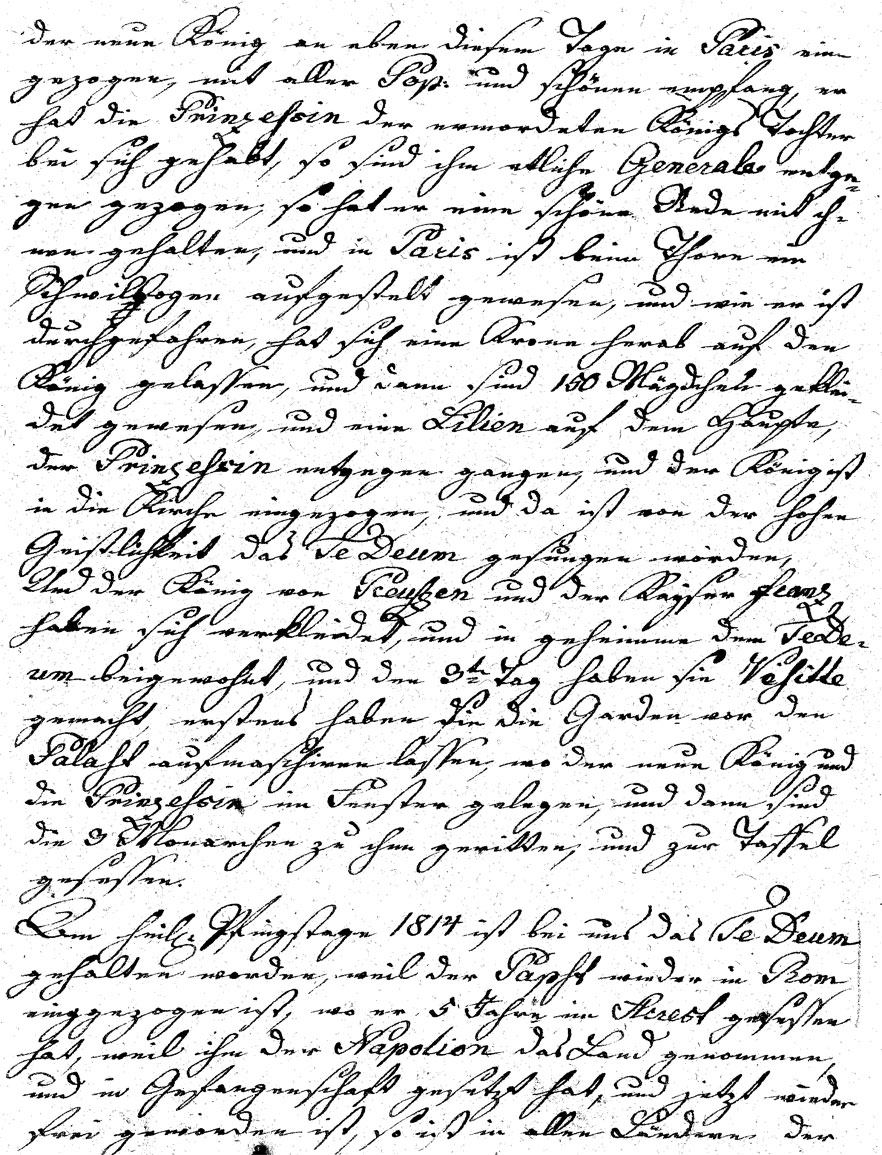 der neue König an eben diesem Tage in Paris ein
gezogen, mit aller Pop: und schönen empfang, er
hat die Prinzessin der ermordeten Königs Tochter
bei sich gehabt, so sind ihm etliche Generale entge-
gen gezogen, so hat er eine schöne Rede mit ih-
nen gehalten, und in Paris ist beim Thore ein
Schwilbogen aufgestelt gewesen, und wie er ist
durchgefahren, hat sich eine Krone herab auf den
König gelassen, und dann sind 150 Mägdchen geklei-
det gewesen, und eine Lilien auf dem Haupte,
der Prinzessin entgegen gangen, und der König ist
in die Kirche eingezogen, und da ist von der hohen
Geistlichkeit das Te Deum gesungen worden,
Und der König von Preußen und der Kayser Franz
haben sich verkleidet, und in geheimme dem TeDe-
um beigewohnt, und den 3t. Tag haben sie Visitte
gemacht, erstens haben sie die Garden vor den
Palast aufmaschiren lassen, wo der neue König und
die Prinzessin im Fenster gelegen, und dann sind
die 3 Monarchen zu ihm geritten, und zur Taffel
gesessen.
Am heil: Pfingstage 1814 ist bei uns das Te Deum
gehalten worden, weil der Papst wieder in Rom
einggezogen ist, wo er 5 Jahre im Arest gesessen
hat, weil ihm der Napolion das Land genommen,
und in Gefangenschaft gesetzt hat, und jetzt wieder
frei geworden ist, so ist in allen Ländern der